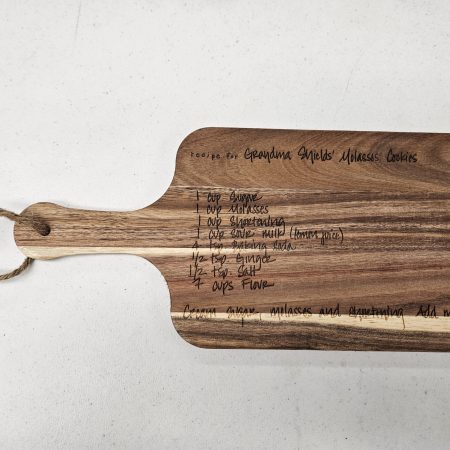 recipe for Grandma Shields' Molasses Cookies
1 cup Sugar
1 cup Molasses
1 cup Shortening
1 cup Sour milk (lemon juice)
4 tsp Baking Soda
1/2 tsp. Ginger
1/2 tsp. Salt
7 cups Flour
Cream sugar, molasses and shortening Add m